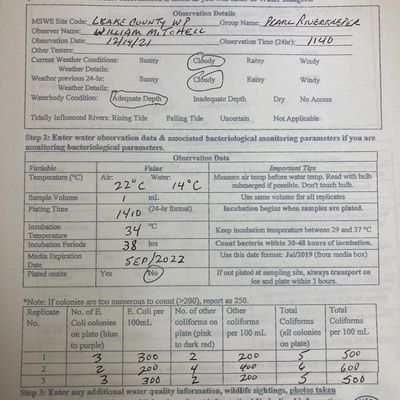 Observation Details
MSWS Site Code: LEAKE COUNTY WP Group Name: PEARL RIVERKEEPER
Observer Name: WILLIAM MITCHELL
Observation Date: 12/14/21 Observation Time (24hr): 1140
Other Testers:
Current Weather Conditions: Sunny Cloudy Rainy Windy
Weather Details:
Weather previous 24-hr: Sunny Cloudy Rainy Windy
Weather Details:
Waterbody Condition: Adequate Depth Inadequate Depth Dry No Access
Tidally Influenced Rivers: Rising Tide Falling Tide Uncertain Not Applicable
Step 2: Enter water observation data & associated bacteriological monitoring parameters if you are
monitoring bacteriological parameters.
Observation Data
Variable Value Important Tips
Temperature (°C) Air: 22°C Water: 14°C Measure air temp before water temp. Read with bulb submerged if possible. Don't touch bulb.
Sample Volume 1 mL Use same volume for all replicates
Plating Time 1410 (24-hr format) Incubation begins when samples are plated.
Incubation Temperature 34 °C Keep incubation temperature between 29 and 37 °C
Incubation Periods 38 hrs Count bacteria within 30-48 hours of incubation.
Media Expiration Date SEP/2022 Use this date format: Jul/2019 (from media box)
Plated onsite Yes No If not plated at sampling site, always transport on ice and plate within 3 hours.
*Note: If colonies are too numerous to count (>200), report as 250.
Replicate No. No. of E. Coli colonies on plate (blue to purple) E. Coli per 100mL No. of other coliforms on plate (pink to dark red) Other coliforms per 100 mL Total Coliforms (all colonies on plate) Total Coliforms per 100 mL
1 3 300 2 200 5 500
2 2 200 4 400 6 600
3 3 300 2 200 5 500
Step 3: Enter any additional water quality information, wildlife sightings, photos taken